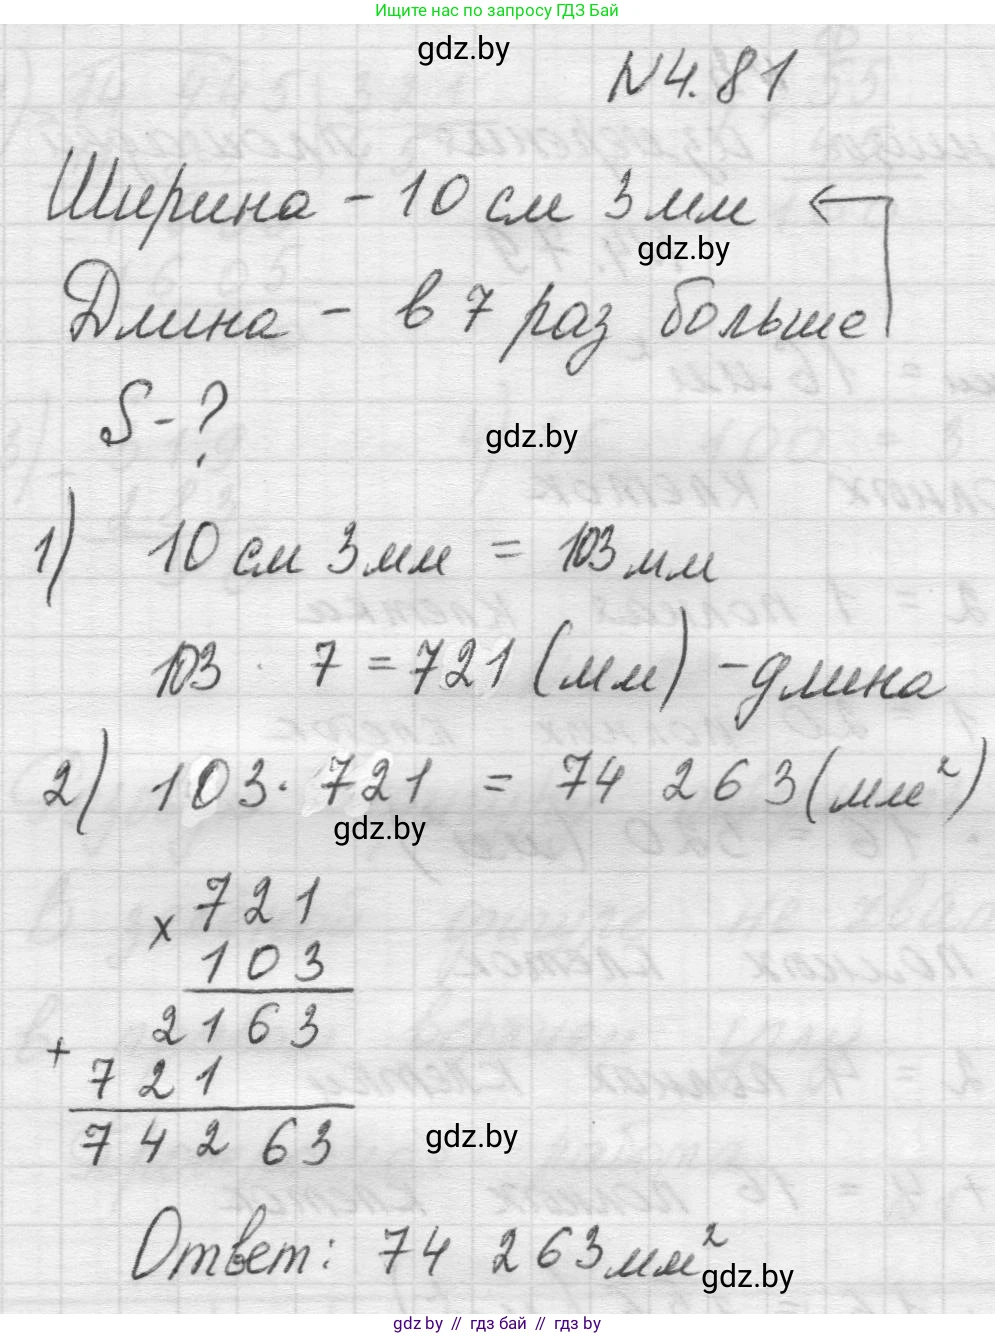 Ищите нас по запросу ГДЗ Бай
gdz.by
N4.81
Ширина - 10 см 3 мм
gdz.by
Длина - в 7 раз больше
S - ?
gdz.by
1) 10 см 3 мм = 103 мм
103 · 7 = 721 (мм) - длина
2) 103 · 721 = 74 263 (мм²)
gdz.by
× 721
103
2163
+ 721
74263
gdz.by
Ответ: 74 263 мм²
gdz.by
gdz by // гдз бай // gdz by